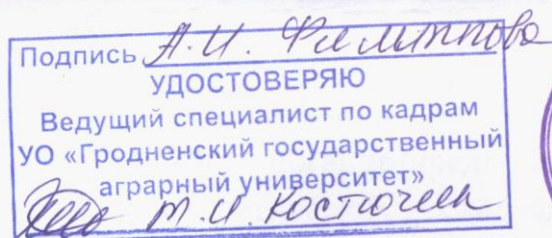 Подпись А.И. Филиппова
УДОСТОВЕРЯЮ
Ведущий специалист по кадрам
УО «Гродненский государственный
аграрный университет»